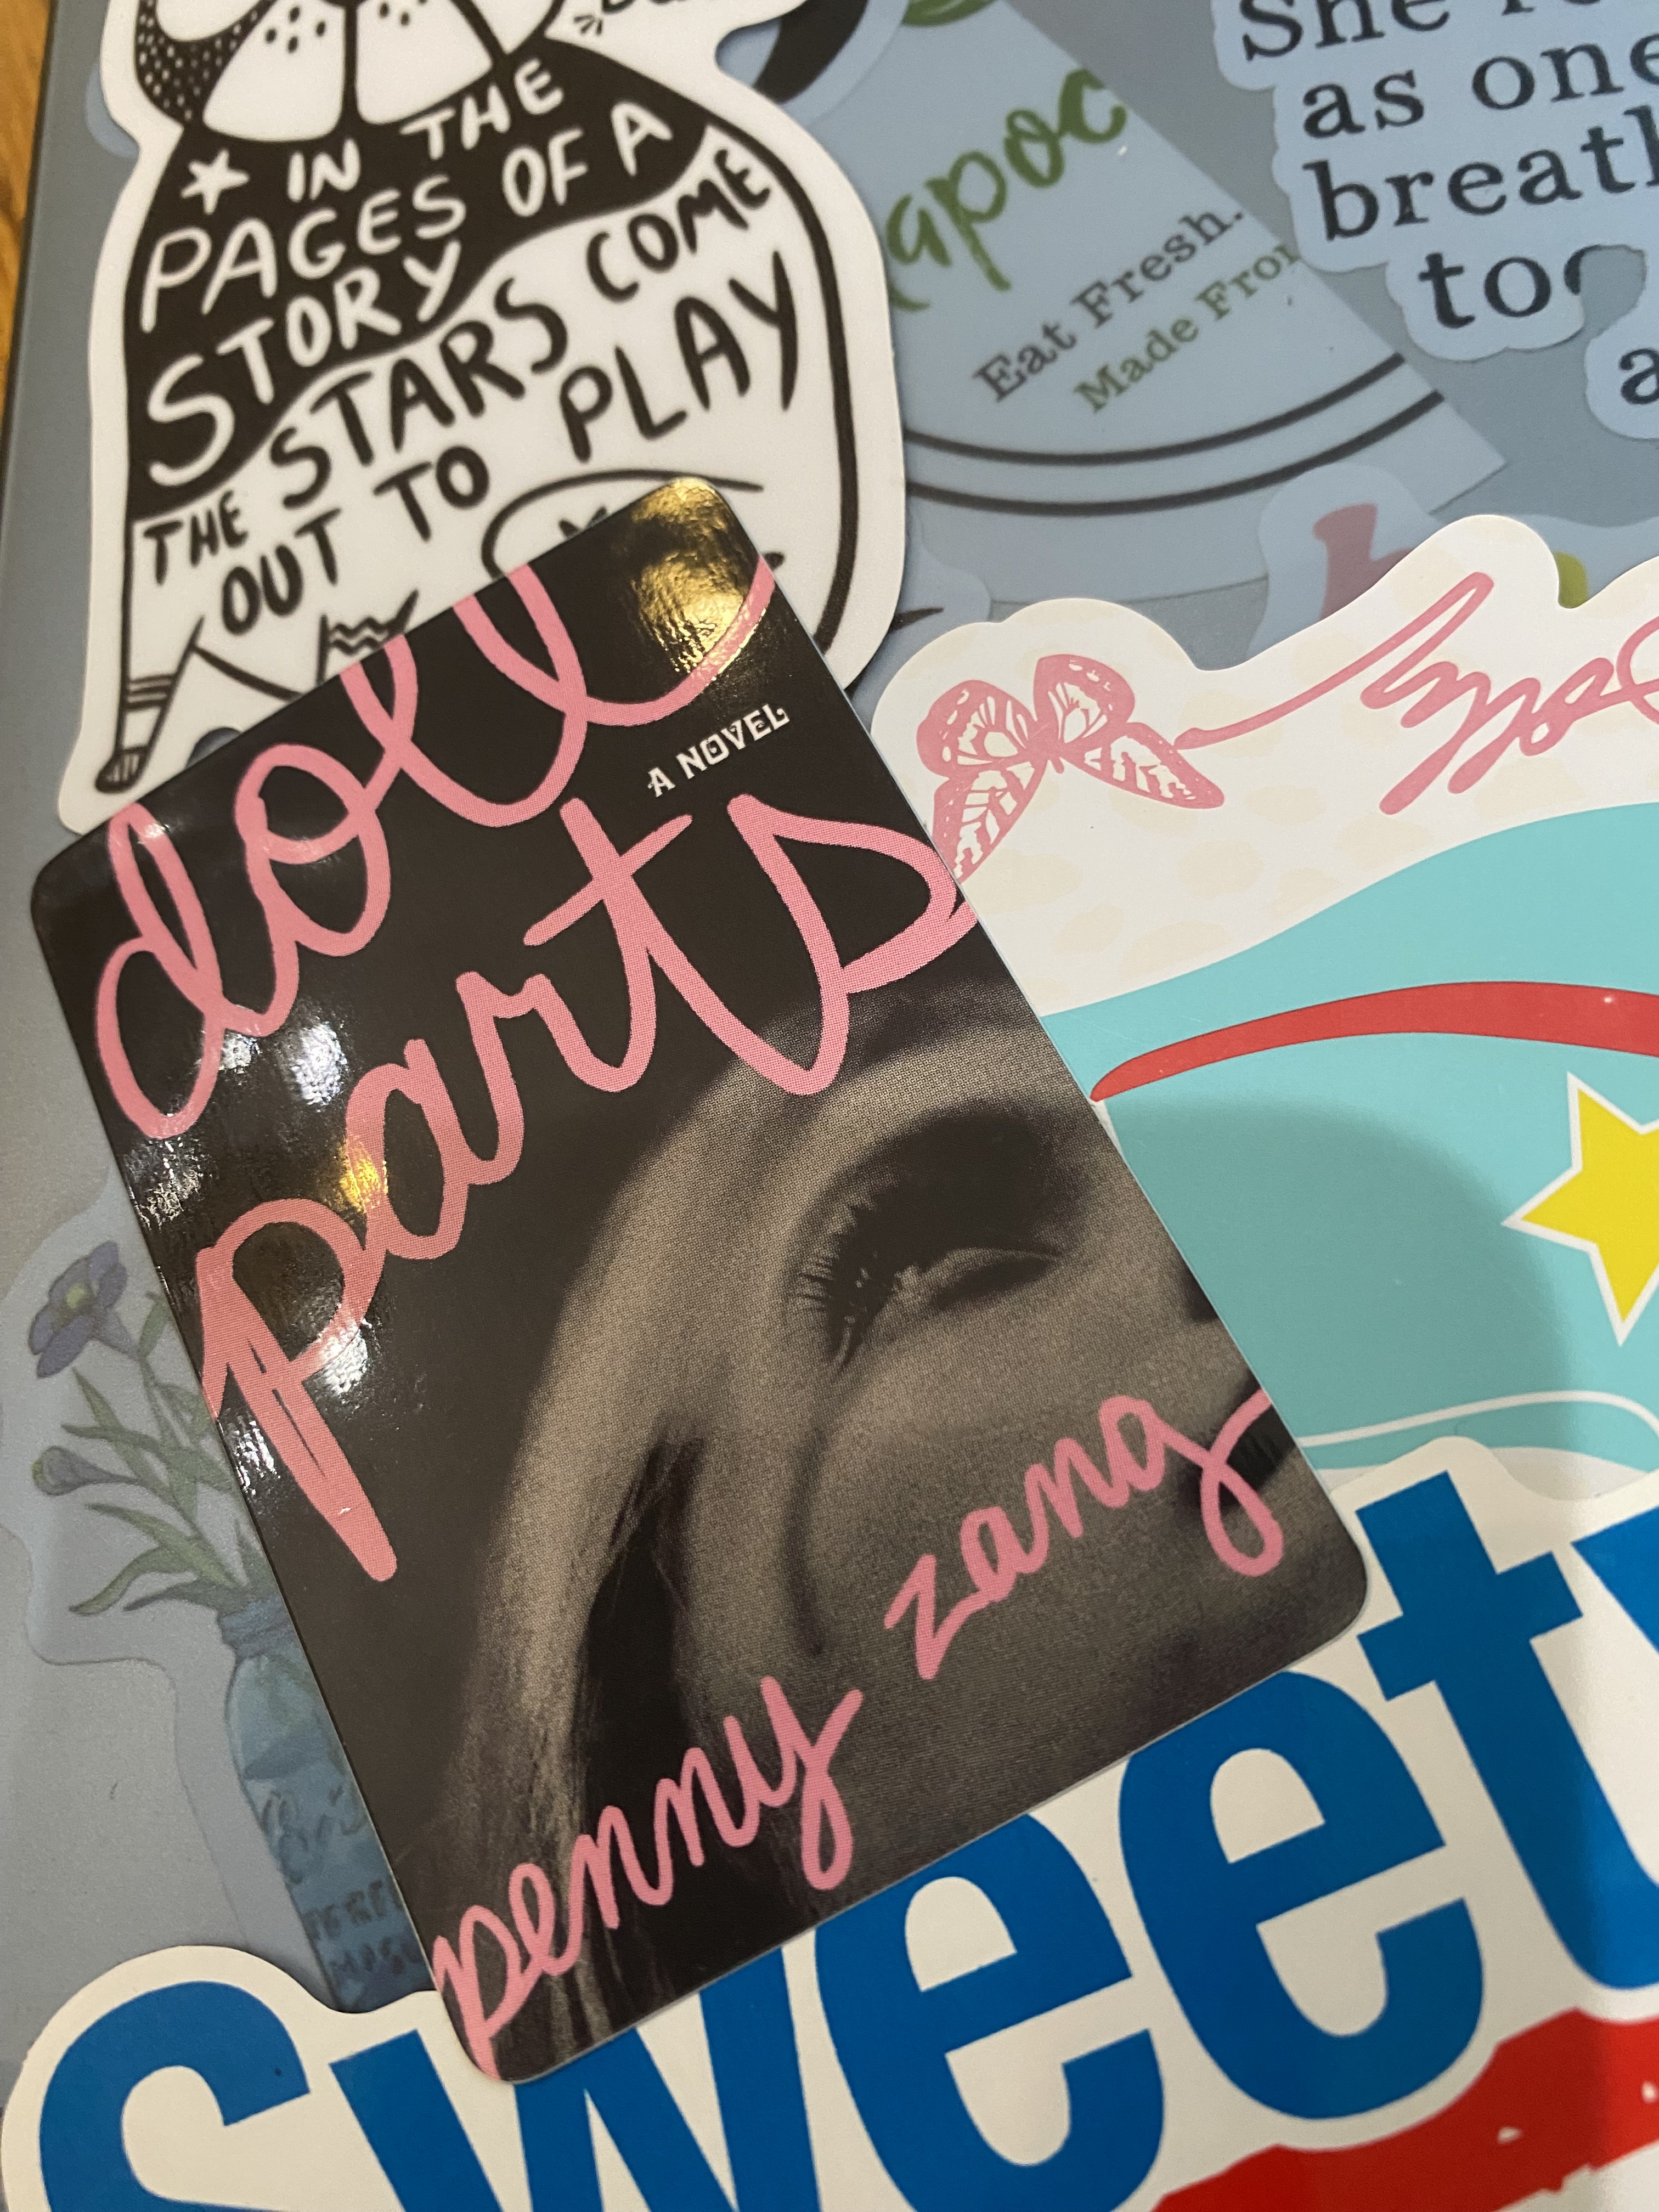 IN THE
PAGES OF A
STORY
THE STARS COME
OUT TO PLAY
apoc
Eat Fresh.
Made From
She
as one
breath
too
a
doll
A NOVEL
parts
penny zang
Sweet